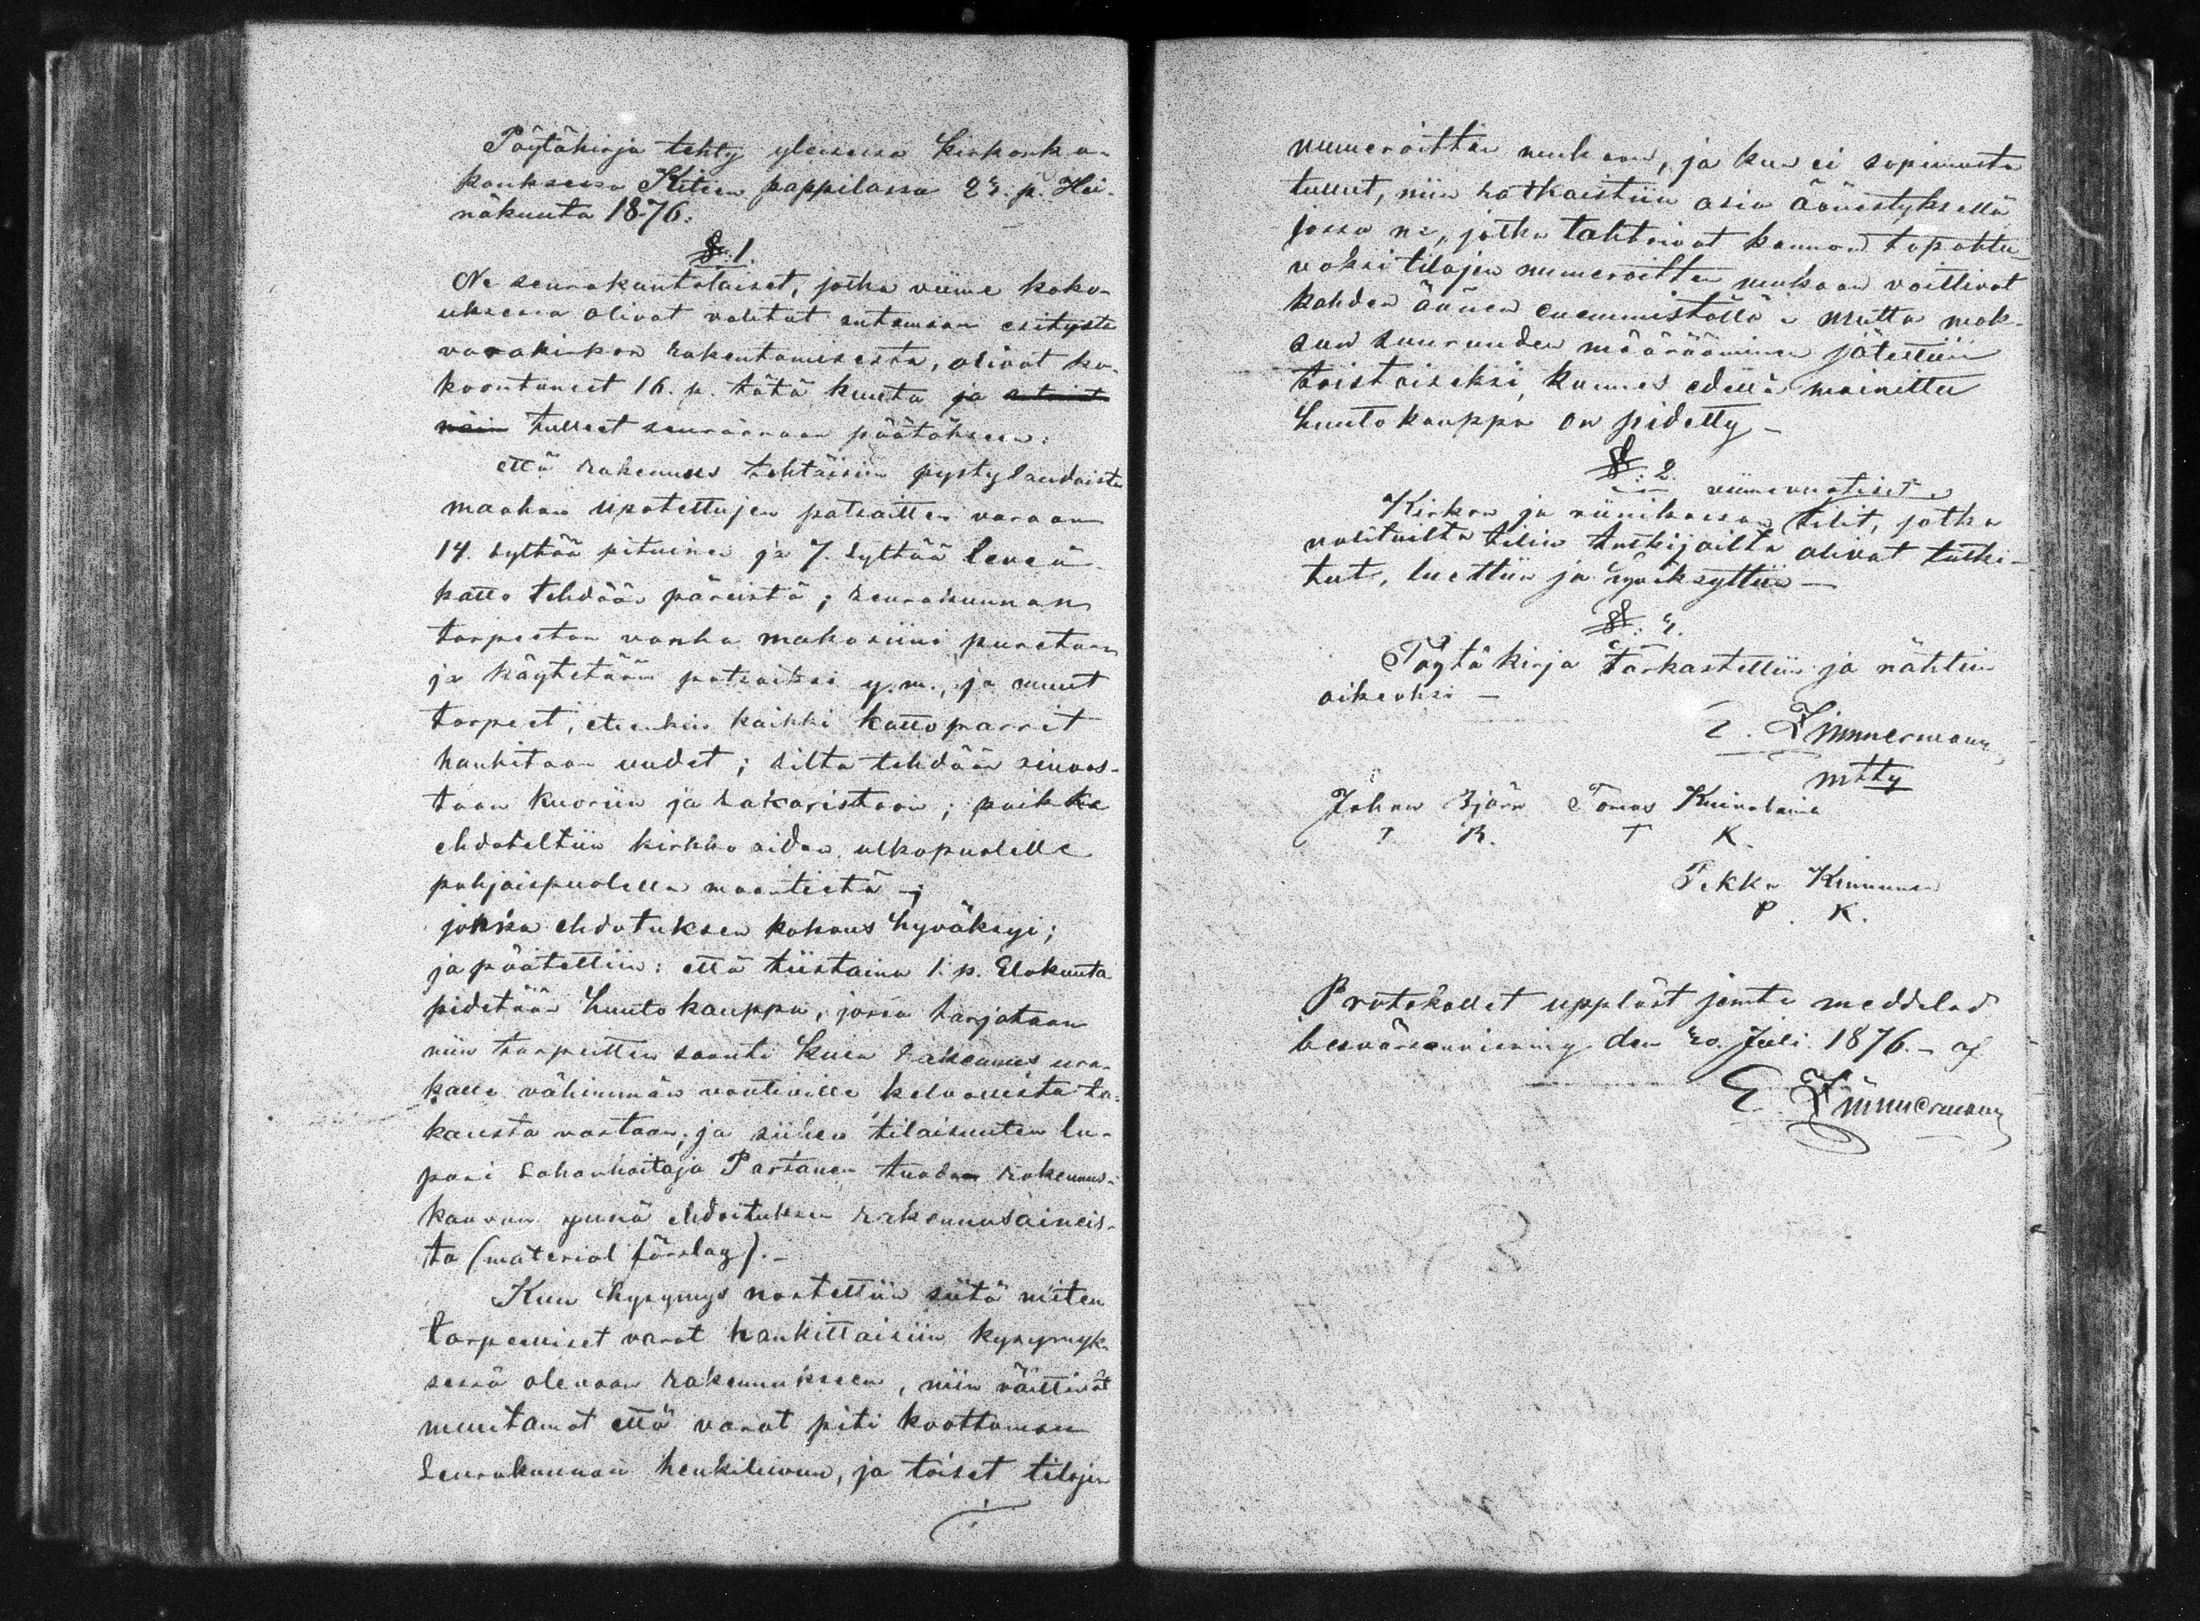 Pöytäkirja tehty yleisessä kirkonko-
kouksessa Kiteen pappilassa 23. p. Hei-
näkuuta 1876.
§. 1.
Ne seurakuntalaiset, jotka viime koko-
uksessa olivat valitut antamaan esitystä
varakirkon rakentamisesta, olivat ko-
koontuneet 16. p. tätä kuuta ja
näin tulleet seuraavaan päätökseen:
että rakennus tehtäisiin pystylaudoista
maahan upotettujen patsaitten varaan
14. syltää pituinen ja 7. syltää leveä
katto tehdään päreistä; seurakunnan
tarpeeton vanha makasiini puretaan
ja käytetään patsaiksi y.m., ja muut
tarpeet, etenkin kaikki kattoparrit
hankitaan uudet; silta tehdään ainoas-
taan kuoriin ja sakaristoon; paikka
ehdoteltiin kirkko aidan ulkopuolelle
pohjaispuolella maantietä -;
jonka ehdotuksen kokous hyväksyi;
ja päätettiin: että tiistaina 1. p. Elokuuta
pidetään huutokauppa, jossa tarjotaan
niin tarpeitten saanti kuin rakennus ura-
kalla vähimmän vaativille kelvollista ta-
kausta vastaan, ja siihen tilaisuuten lu-
pasi Sahanhoitaja Partanen tuoda rakennus-
kaavan ynnä ehdoituksen rakennusaineis-
ta (material förslag). -
Kun kysymys nostettiin siitä miten
tarpeelliset varat hankittaisiin kysymyk-
sessä olevaan rakennukseen, niin väittivät
muutamat että varat piti koottaman
seurakunnan henkiluvun, ja toiset tilojen
numeroitten mukaan, ja kun ei sopimusta
tullut, niin ratkaistiin asia äänestyksellä
jossa ne, jotka tahtoivat kannon tapahtu-
vaksi tilojen numeroitten mukaan voittivat
kahden äänen enemmistöllä; mutta mak-
sun suuruuden määrääminen jätettiin
toistaiseksi, kunnes edellä mainittu
huutokauppa on pidetty -
§. 2.
viimevuotiset
Kirkon ja viinikassan tilit, jotka
valituilta tilin tutkijoilta olivat tutki-
tut, luettiin ja hyväksyttiin -
§. 3.
Pöytäkirja tarkastettiin ja nähtiin
oikeaksi -
E. Zimmermann
Johan Björn Tomas Kuivalaine
J B. T K.
Pekka Kinnunen
P. K.
Protokollet uppläst jemte meddelad
besvärsanvisning den 30. Juli 1876. - af
E. Zimmermann